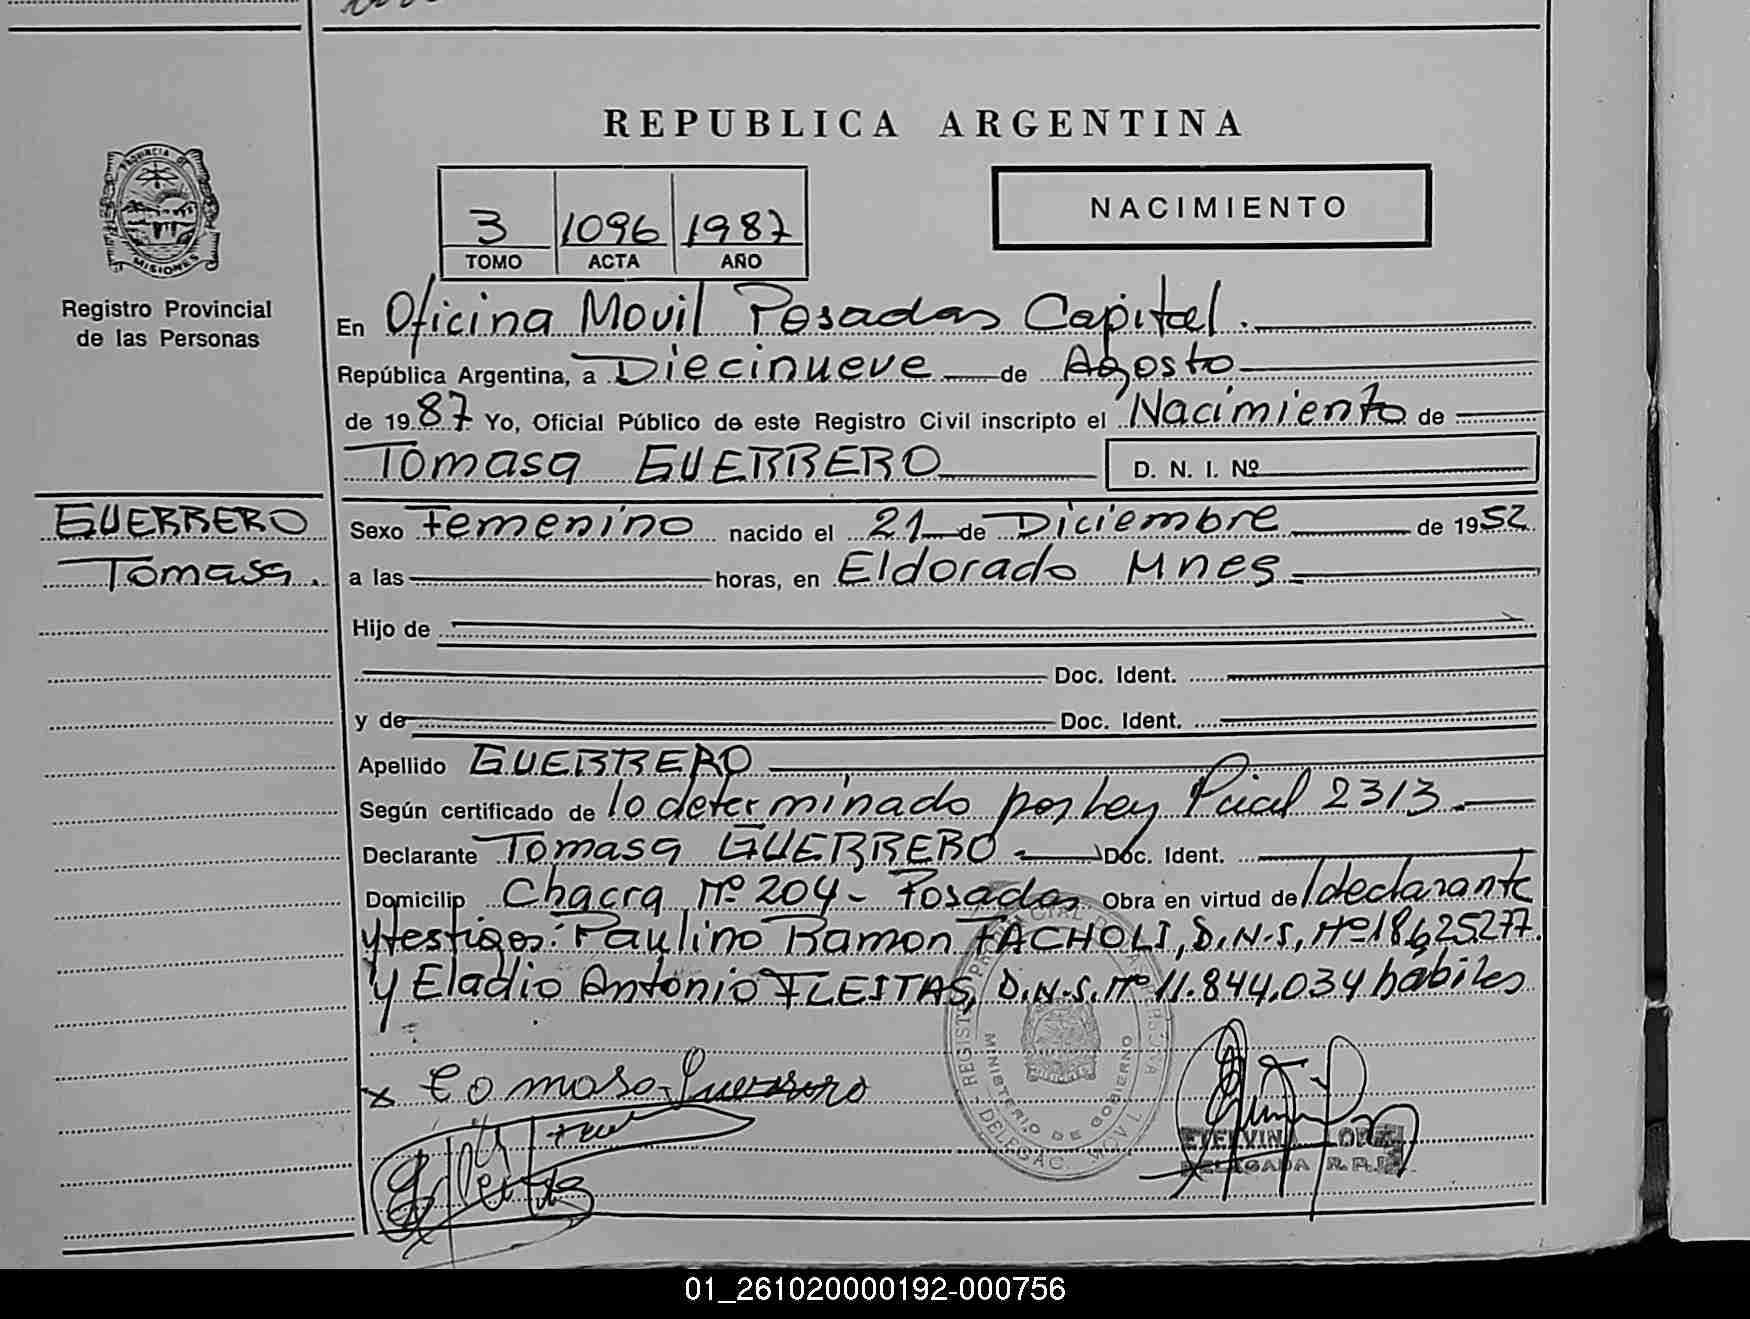 REPUBLICA ARGENTINA
PROVINCIA DE
MISIONES
Registro Provincial
de las Personas
3 1096 1987
TOMO ACTA AÑO
NACIMIENTO
En Oficina Movil Posadas Capital.
República Argentina, a Diecinueve de Agosto
de 1987 Yo, Oficial Público de este Registro Civil inscripto el Nacimiento de
Tomasa GUERRERO D. N. I. Nº
GUERRERO
Tomasa.
Sexo Femenino nacido el 21 de Diciembre de 1952
a las horas, en Eldorado Mnes
Hijo de
Doc. Ident.
y de Doc. Ident.
Apellido GUERRERO
Según certificado de lo determinado por Ley Pcial 2313.
Declarante Tomasa GUERRERO Doc. Ident.
Domicilio Chacra Nº 204 - Posadas Obra en virtud de declarante
y testigos: Paulino Ramon FACHOLI, D.N.I, Nº 18,625277.
y Eladio Antonio FLEITAS, D.N.I. Nº 11.844.034 hábiles
x tomasa Guerrero
MINISTERIO DE GOBERNO
DELEGAC. MOVIL
ETELVINA LOPEZ
DELEGADA R.P.
01_261020000192-000756